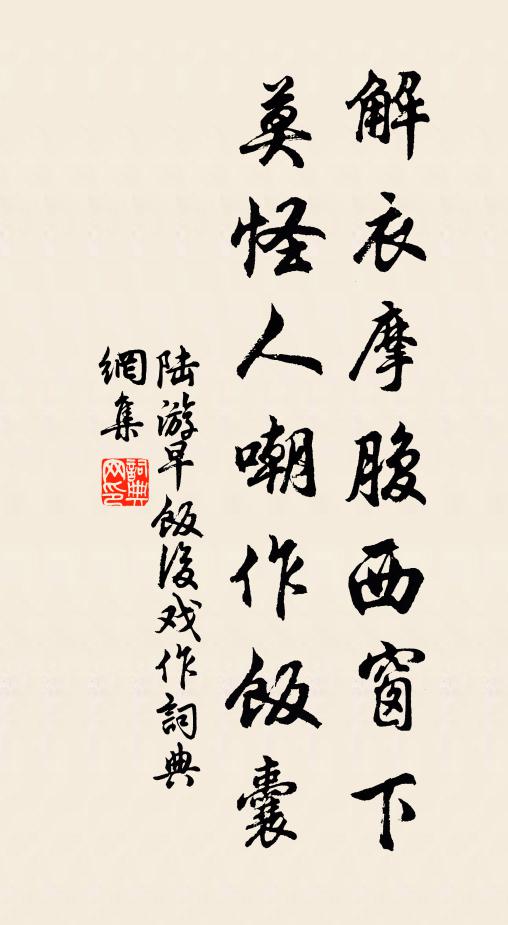 解衣摩腹西窗下
莫怪人嘲作飯囊
陆游早飯後戏作詞典
網集
詞典
网印